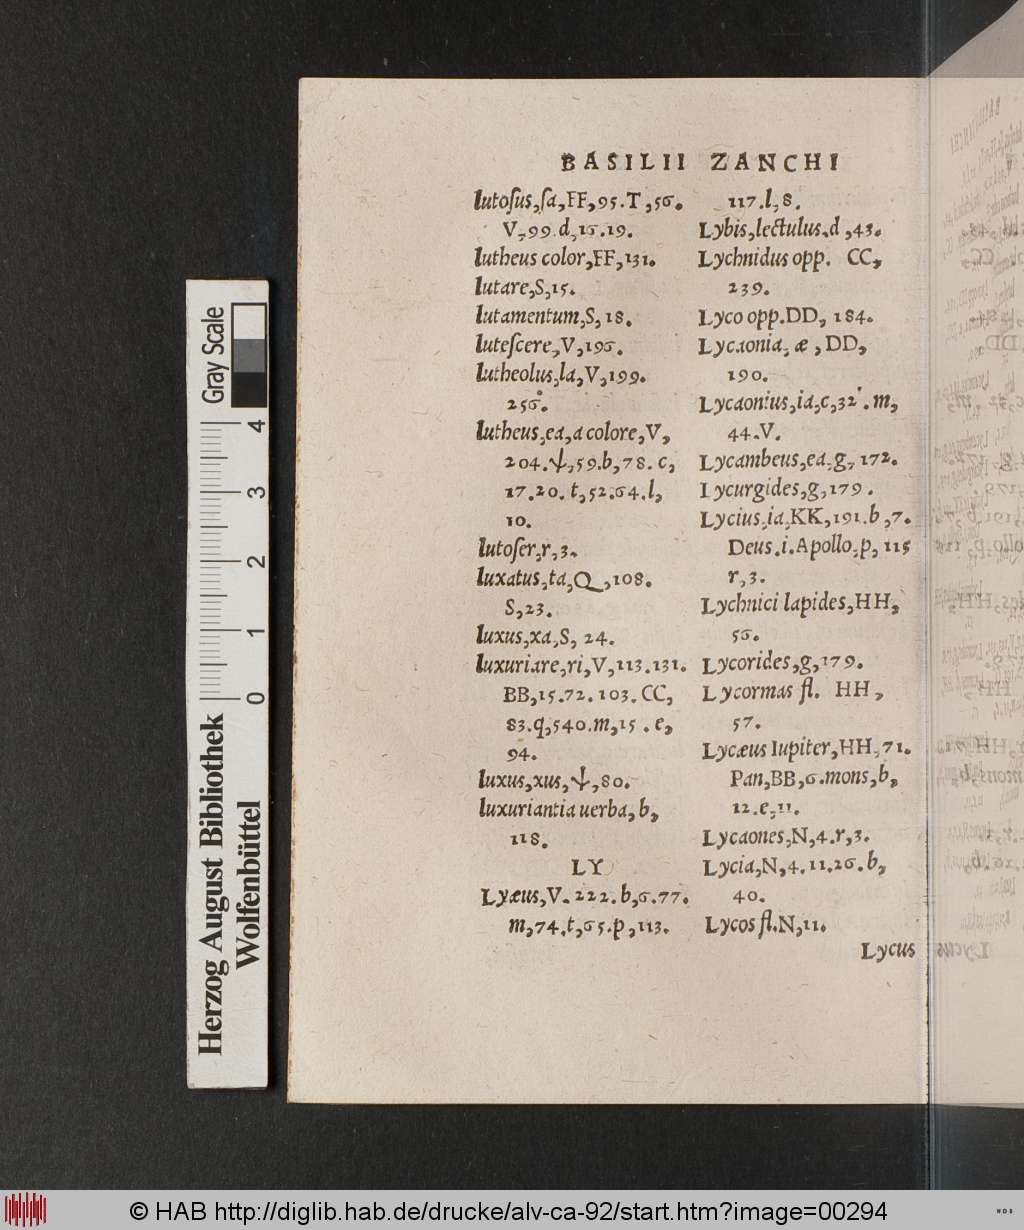 BASILII ZANCHI
lutoſus,ſa,FF,95.T,56.
V,99.d,16.19.
lutheus color,FF,131.
lutare,S,15.
lutamentum,S,18.
luteſcere,V,196.
lutheolus,la,V,199.
256.
lutheus,ea,a colore,V,
204.ψ,59.b,78.c,
17.20.t,52.64.l,
10.
lutoſer,r,3.
luxatus,ta,Q,108.
S,23.
luxus,xa,S, 24.
luxuriare,ri,V,113.131.
BB,15.72.103.CC,
83.q,540.m,15.e,
94.
luxus,xus,ψ,80.
luxuriantia uerba,b,
118.
LY
Lyæus,V.222.b,6.77.
m,74.t,65.p,113.
117.l,8.
Lybis,lectulus.d,43.
Lychnidus opp. CC,
239.
Lyco opp.DD, 184.
Lycaonia, æ, DD,
190.
Lycaonius,ia,c,32.m,
44.V.
Lycambeus,ea,g,172.
Lycurgides,g,179.
Lycius,ia,KK,191.b,7.
Deus.i.Apollo,p,115
r,3.
Lychnici lapides,HH,
56.
Lycorides,g,179.
Lycormas fl. HH,
57.
Lycæus Iupiter,HH,71.
Pan,BB,6.mons,b,
12.e,11.
Lycaones,N,4.r,3.
Lycia,N,4.11.26.b,
40.
Lycos fl.N,11.
Lycus
Gray Scale
4
3
2
1
0
Herzog August Bibliothek
Wolfenbüttel
© HAB http://diglib.hab.de/drucke/alv-ca-92/start.htm?image=00294
WDB